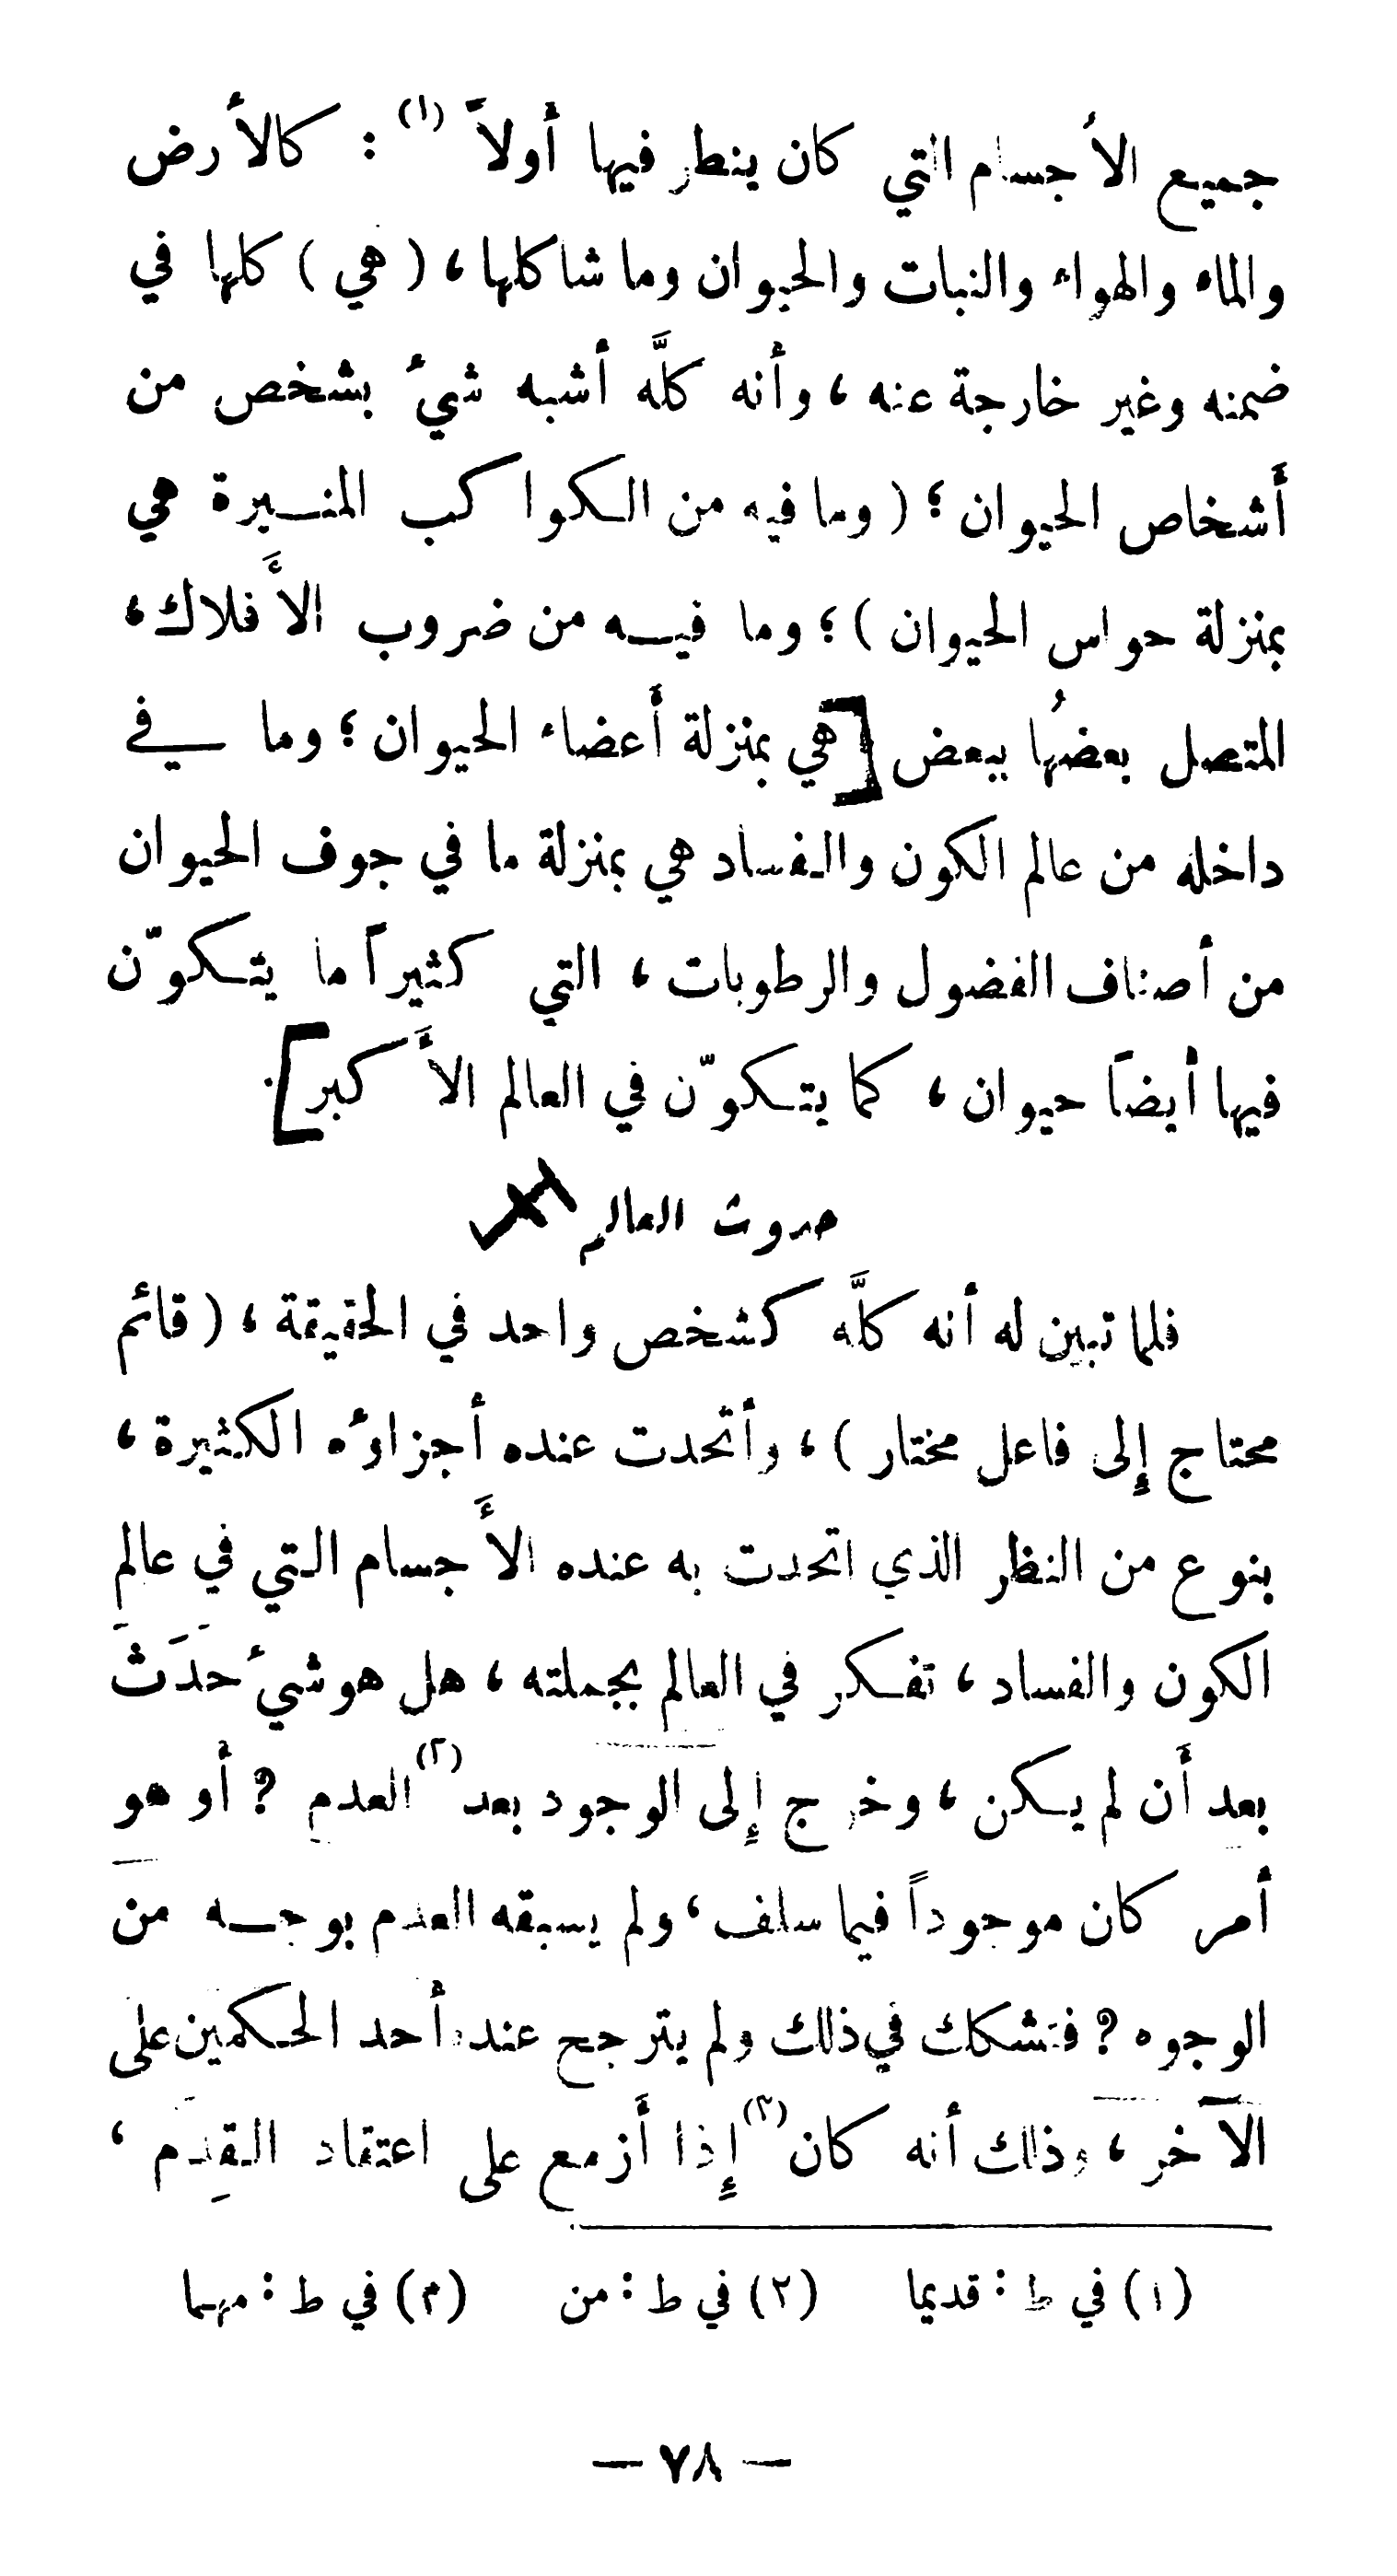 جميع الأجسام التي كان ينظر فيها أولاً (١) : كالأرض
والماء والهواء والنبات والحيوان وما شاكلها ، ( هي ) كلها في
ضمنه وغير خارجة عنه ، وأنه كلَّه أشبه شيءٌ بشخص من
أشخاص الحيوان ؛ ( وما فيه من الكواكب المنيرة هي
بمنزلة حواس الحيوان ) ؛ وما فيه من ضروب الأَفلاك ،
المتصل بعضُها ببعض [ هي بمنزلة أَعضاء الحيوان ؛ وما في
داخله من عالم الكون والفساد هي بمنزلة ما في جوف الحيوان
من أصناف الفضول والرطوبات ، التي كثيراً ما يتكوّن
فيها أيضاً حيوان ، كما يتكوّن في العالم الأَكبر ] .
حدوث العالم
فلما تبين له أنه كلَّه كشخص واحد في الحقيقة ، ( قائم
محتاج إِلى فاعل مختار ) ، وأتحدت عنده أجزاؤه الكثيرة ،
بنوع من النظر الذي اتحدت به عنده الأَجسام التي في عالم
الكون والفساد ، تفكر في العالم بجملته ، هل هو شيءٌ حدَثَ
بعد أَن لم يكن ، وخرج إِلى الوجود بعد (٢) العدم ؟ أو هو
أمر كان موجوداً فيما سلف ، ولم يسبقه العدم بوجه من
الوجوه ؟ فتشكك في ذلك ولم يترجح عنده أحد الحكمين على
الآخر ، وذلك أنه كان (٣) إِذا أَزمع على اعتقاد القِدم ،
(١) في ط : قديما (٢) في ط : من (٣) في ط : مهما
— ٧٨ —